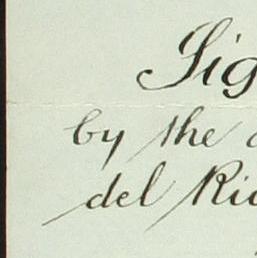 Sig
by the
del Ric